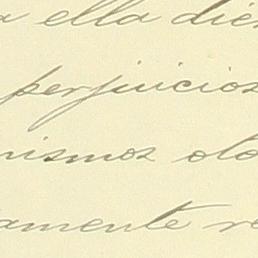 a ella die
perjuicios
mismos oto
amente re